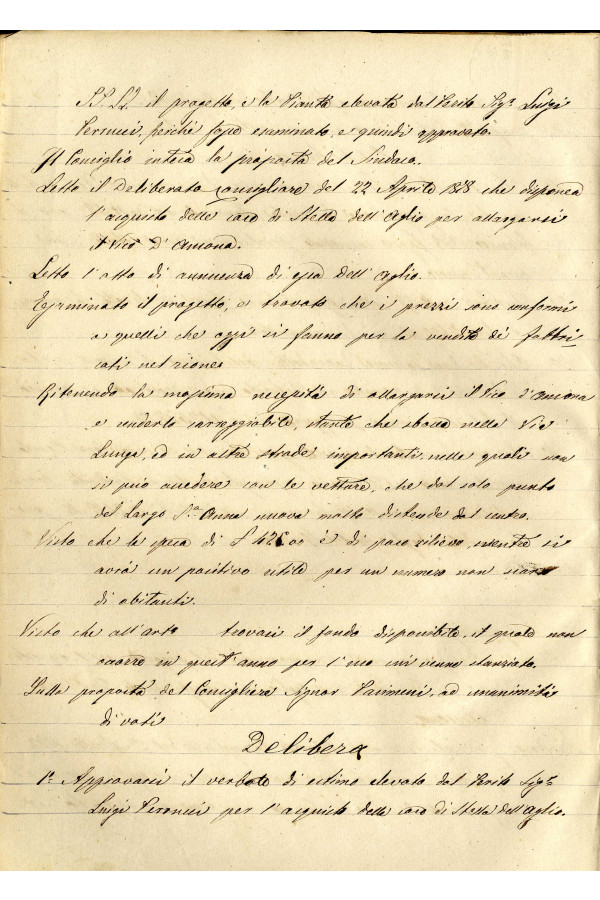 SS. LL. il progetto, e la Pianta elevata dal Perito Sigr Luigi
Perrucci, perchè fosse esaminato, e quindi approvato.
Il Consiglio intesa la proposta del Sindaco.
Letto il Deliberato Consigliare del 22 Aprile 1878 che disponea
l'acquisto delle case di Stella dell'Aglio per allargarsi
il Vico d'Ancona.
Letto l'atto di annuenza di essa dell'Aglio.
Esaminato il progetto, e trovato che i prezzi sono conformi
a quelli che oggi si fanno per la vendita dei fabbri-
cati nel rione
Ritenendo la massima necessità di allargarsi il Vico d'Ancona
e renderlo carreggiabile, stante che sbocca nella Via
Lunga, ed in altre strade importanti, nelle quali non
si può accedere con le vetture, che dal solo punto
del Largo S.a Anna nuova molto distante dal centro.
Visto che la spesa di £ 425,00 è di poco rilievo, mentre si
avrà un positivo utile per un numero non scarso
di abitanti.
Visto che all'arto trovasi il fondo disponibile, il quale non
occorre in quest'anno per l'uso cui venne stanziato.
Sulla proposta del Consigliere Signor, ad unanimità
di voti
Delibera
1.° Approvarsi il verbale di estimo elevato dal Perito Sigr
Luigi Perrucci per l'acquisto delle case di Stella dell'Aglio.